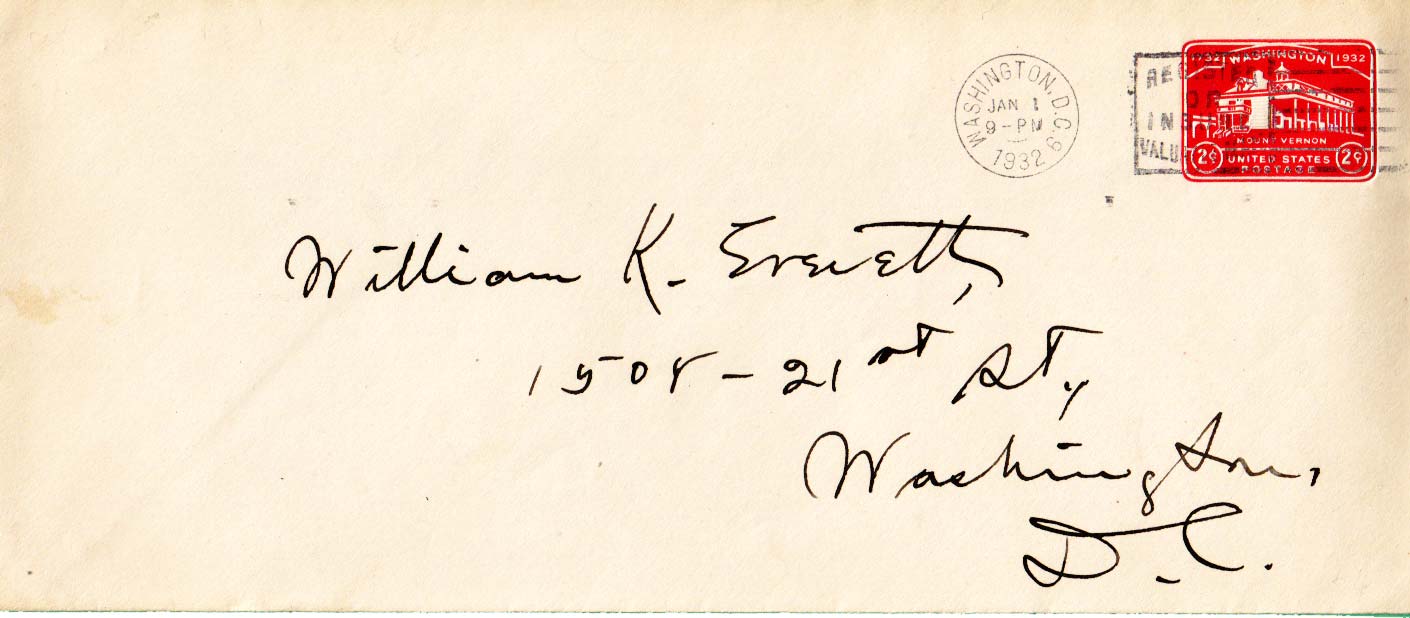 WASHINGTON, D.C. 6
JAN 1
9-PM
1932
REGISTER
OR
INSURE
VALUABLE
1732 WASHINGTON 1932
MOUNT VERNON
2¢ UNITED STATES 2¢
POSTAGE
William K. Everett,
1508 - 21st St.,
Washington,
D.C.